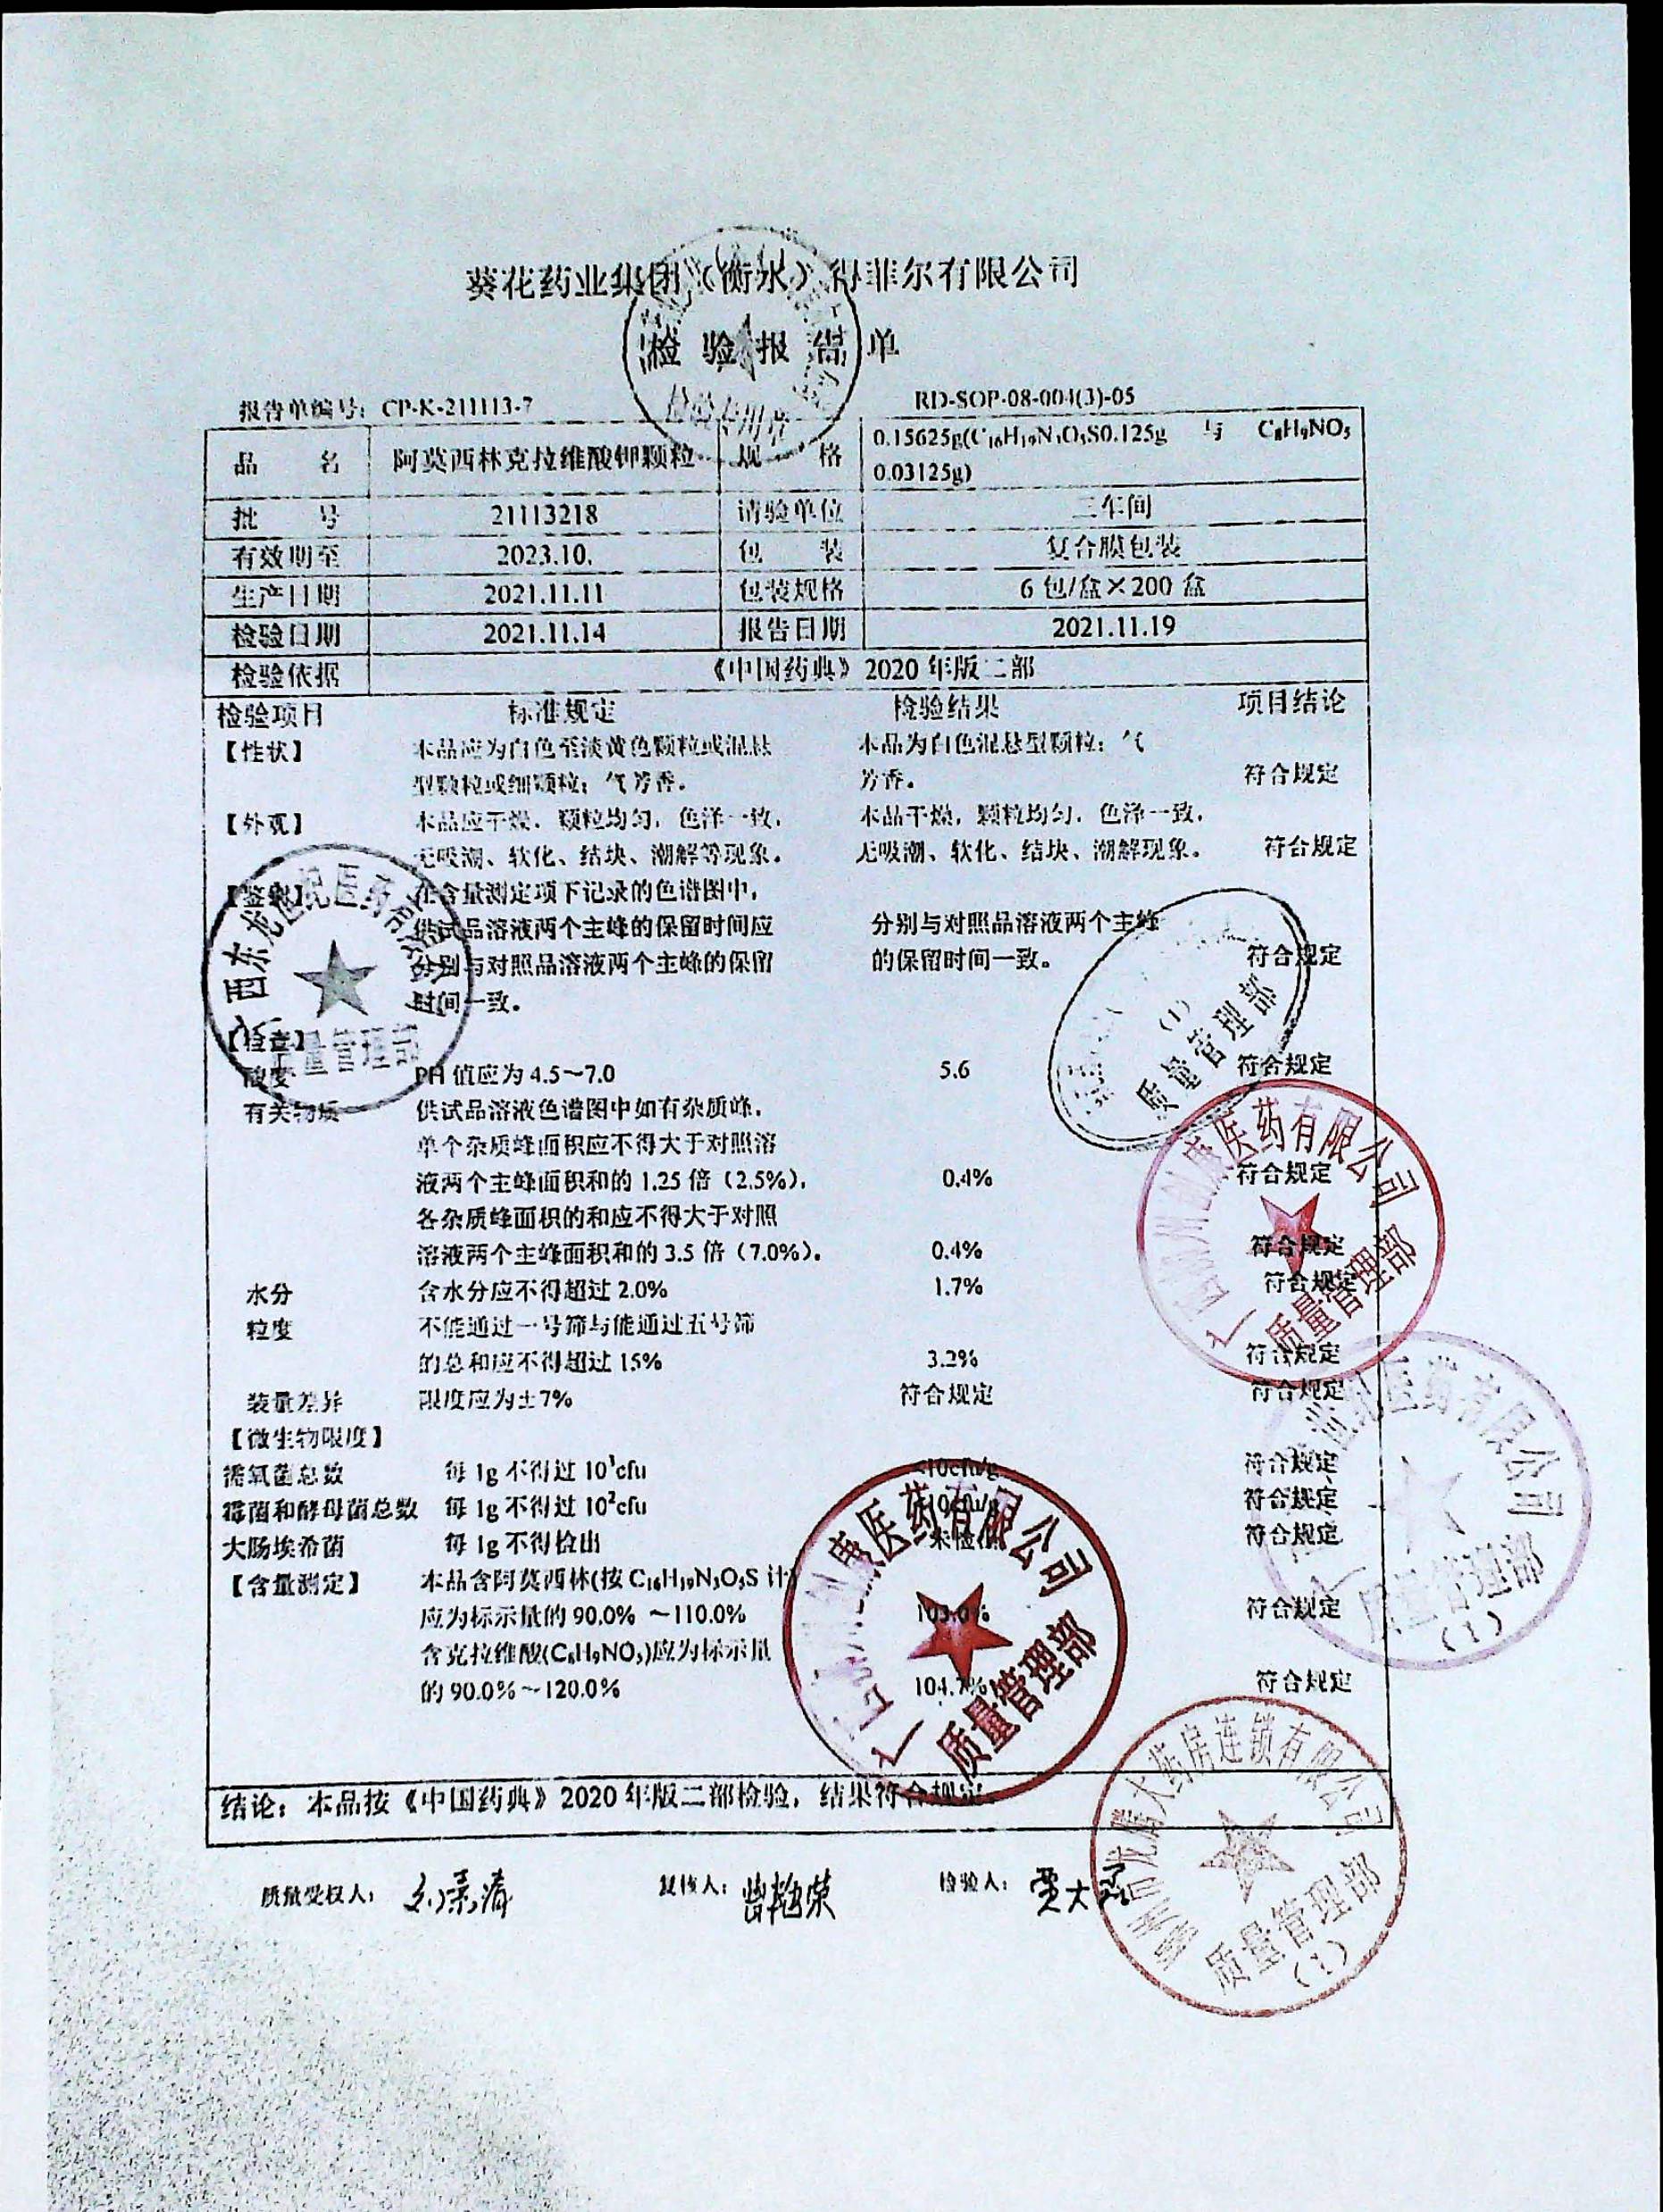 葵花药业集团（衡水）得菲尔有限公司
检验报告单
报告单编号：CP-K-211113-7 RD-SOP-08-004(3)-05
品名 阿莫西林克拉维酸钾颗粒 规格 0.15625g(C₁₆H₁₉N₃O₅S0.125g 与 C₈H₉NO₅
0.03125g)
批号 21113218 请验单位 三车间
有效期至 2023.10. 包装 复合膜包装
生产日期 2021.11.11 包装规格 6 包/盒×200 盒
检验日期 2021.11.14 报告日期 2021.11.19
检验依据 《中国药典》2020 年版二部
检验项目 标准规定 检验结果 项目结论
【性状】 本品应为白色至淡黄色颗粒或混悬 本品为白色混悬型颗粒；气
型颗粒或细颗粒；气芳香。 芳香。 符合规定
【外观】 本品应干燥，颗粒均匀，色泽一致， 本品干燥，颗粒均匀，色泽一致，
无吸潮、软化、结块、潮解等现象。 无吸潮、软化、结块、潮解现象。 符合规定
【鉴别】 在含量测定项下记录的色谱图中，
供试品溶液两个主峰的保留时间应 分别与对照品溶液两个主峰
分别与对照品溶液两个主峰的保留 的保留时间一致。 符合规定
时间一致。
【检查】
酸度 PH 值应为 4.5～7.0 5.6 符合规定
有关物质 供试品溶液色谱图中如有杂质峰，
单个杂质峰面积应不得大于对照溶
液两个主峰面积和的 1.25 倍（2.5%）， 0.4% 符合规定
各杂质峰面积的和应不得大于对照
溶液两个主峰面积和的 3.5 倍（7.0%）。 0.4% 符合规定
水分 含水分应不得超过 2.0% 1.7% 符合规定
粒度 不能通过一号筛与能通过五号筛
的总和应不得超过 15% 3.2% 符合规定
装量差异 限度应为±7% 符合规定 符合规定
【微生物限度】
需氧菌总数 每 1g 不得过 10³cfu <10cfu/g 符合规定
霉菌和酵母菌总数 每 1g 不得过 10²cfu <10cfu/g 符合规定
大肠埃希菌 每 1g 不得检出 未检出 符合规定
【含量测定】 本品含阿莫西林(按 C₁₆H₁₉N₃O₅S 计)
应为标示量的 90.0% ～110.0% 103.0% 符合规定
含克拉维酸(C₈H₉NO₅)应为标示量
的 90.0%～120.0% 104.7% 符合规定
结论：本品按《中国药典》2020 年版二部检验，结果符合规定。
质量受权人： 复核人： 检验人：
检验专用章
质量管理部
(1)
质量管理部
医药有限公司
质量管理部
医药有限公司
质量管理部
医药有限公司
质量管理部
(1)
龙腾大药房连锁有限公司
质量管理部
(1)